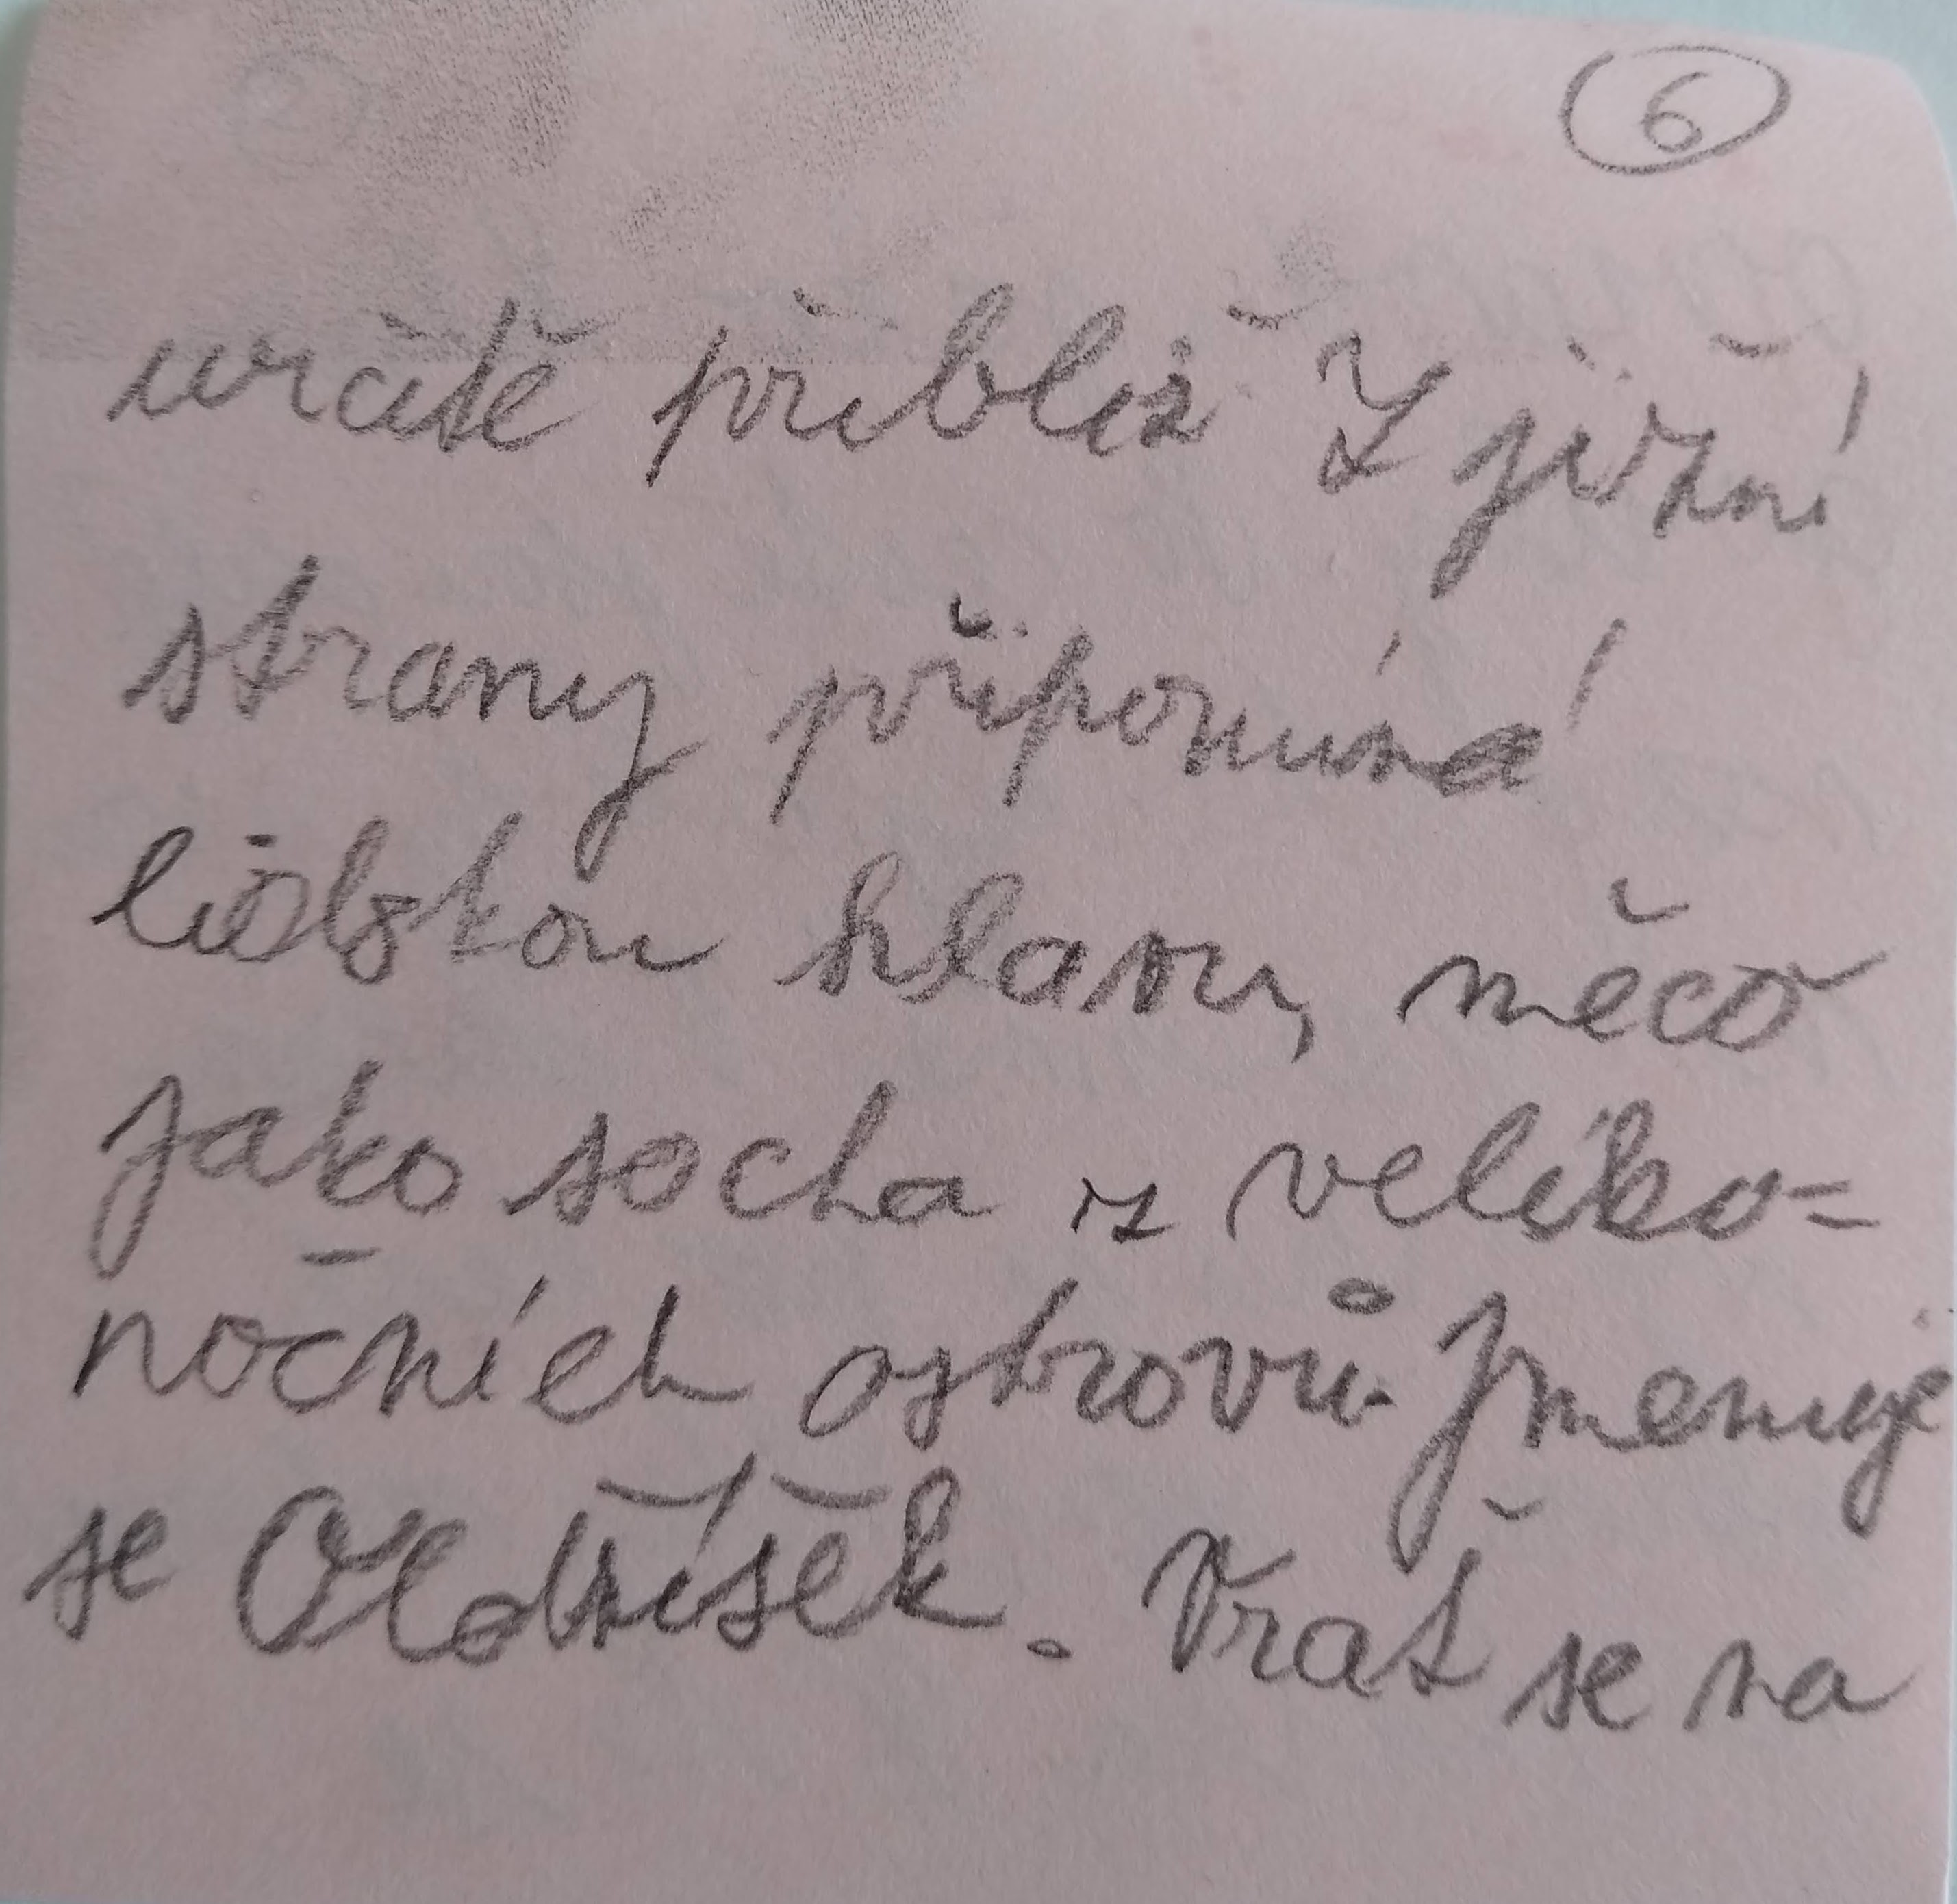 6
určitě přibliž Z jižní
strany připomíná
lidskou hlavu, něco
jako socha z veliko=
nočních ostrovů. Jmenuje
se Oldříšek. Vrať se na